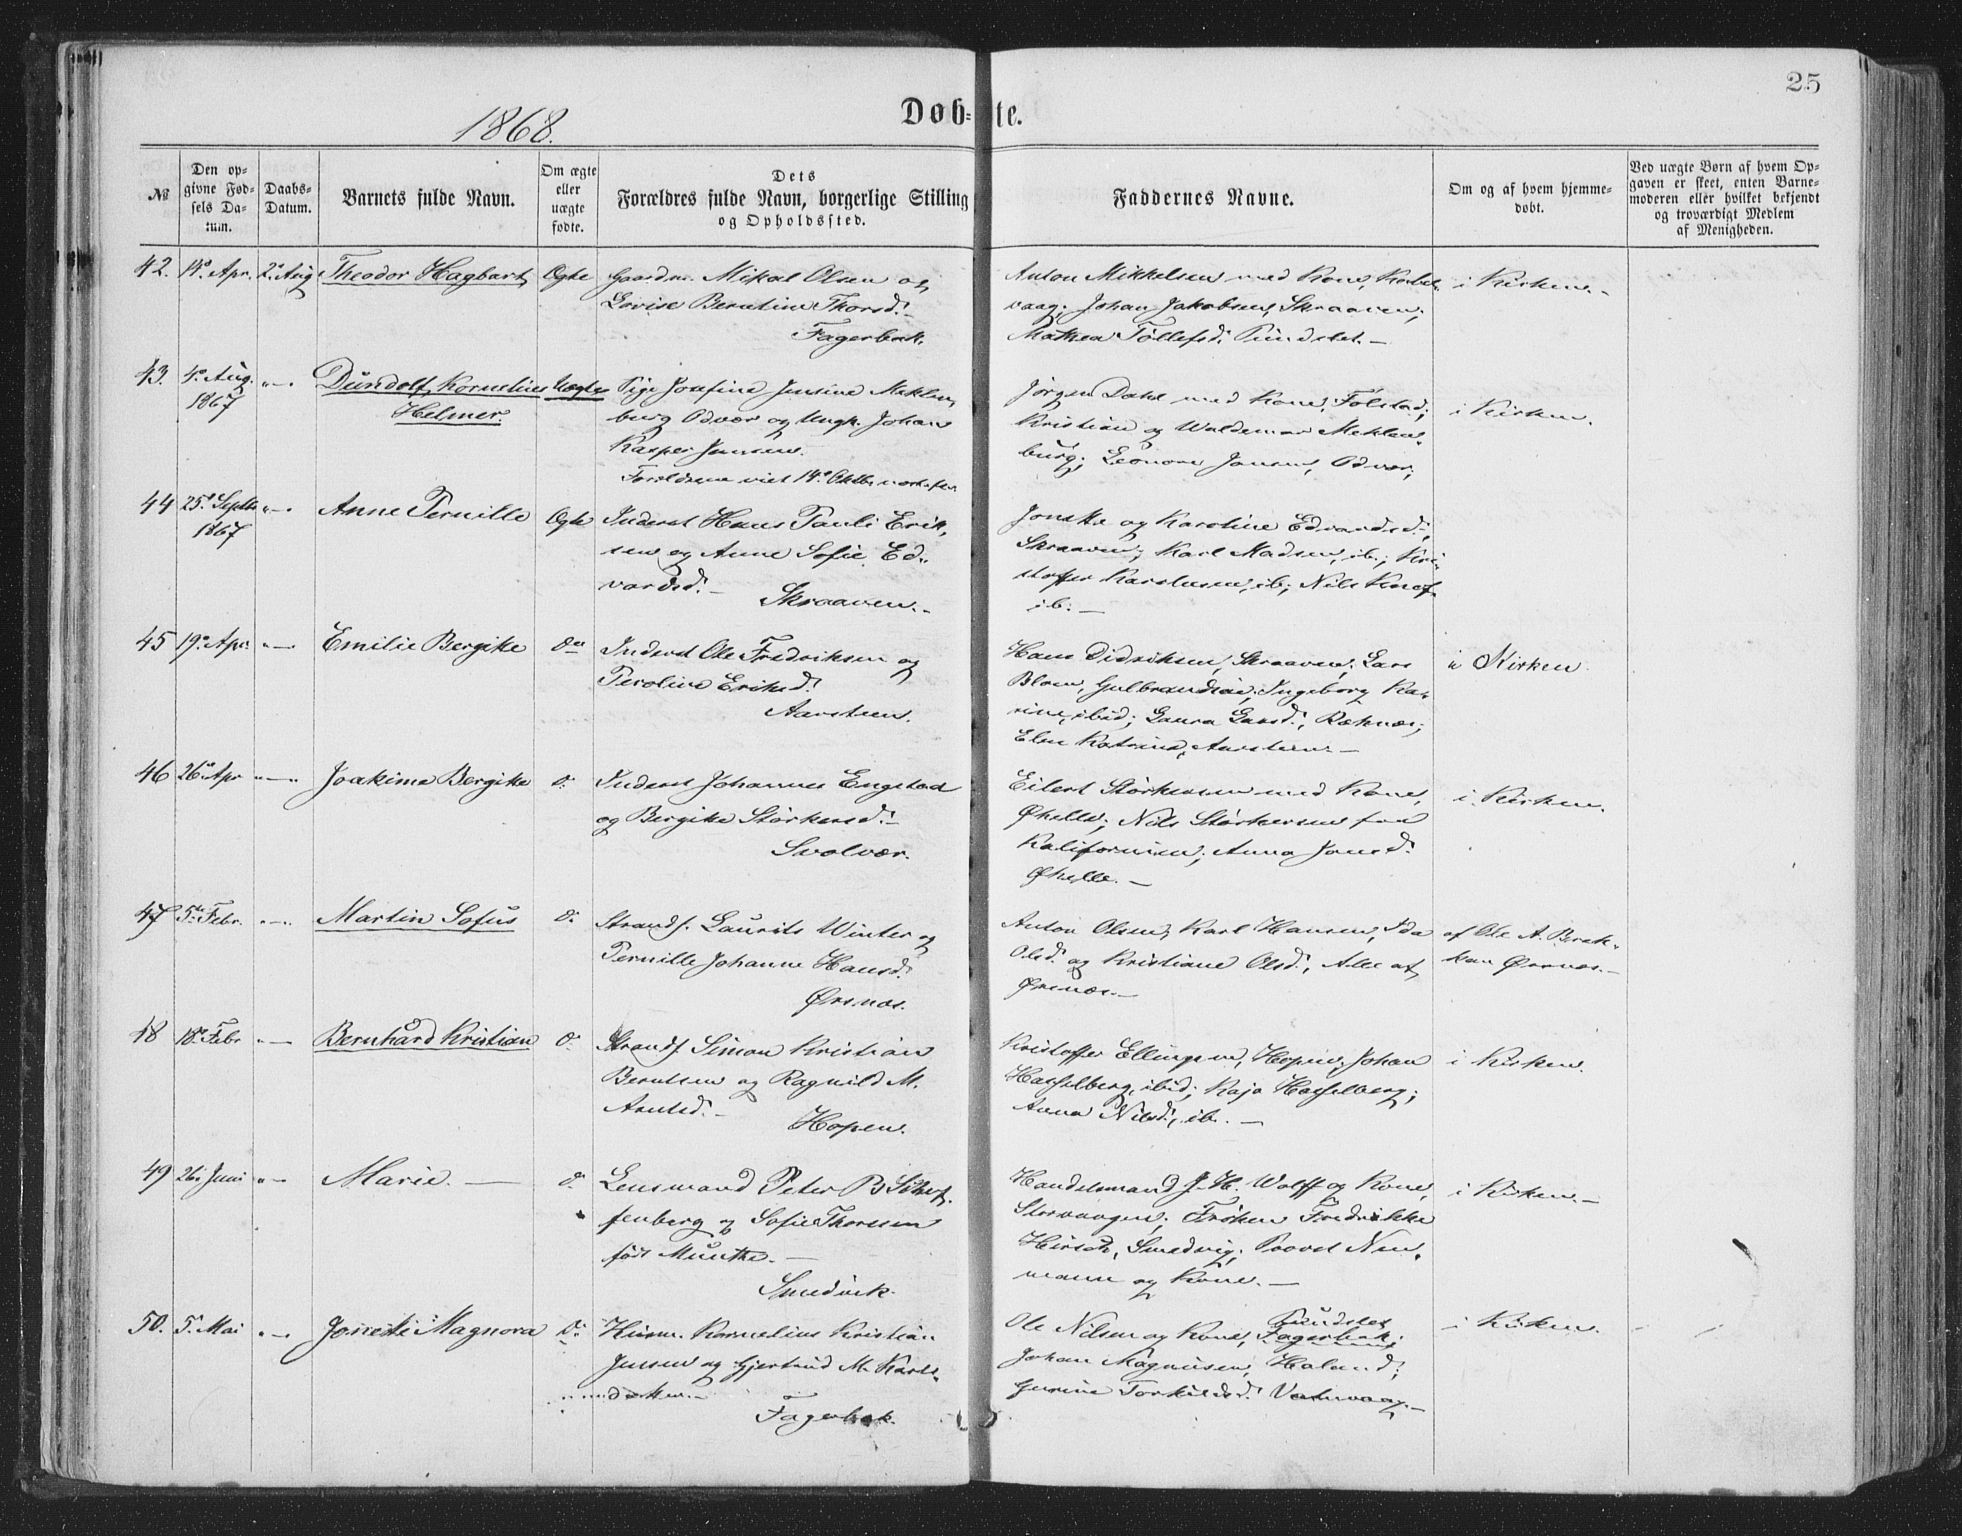 25
1868.
Døb-te.
№
Den opgivne Fødsels Datum.
Daabs-Datum.
Barnets fulde Navn.
Om ægte eller uægte fødte.
Dets Forældres fulde Navn, borgerlige Stilling og Opholdssted.
Faddernes Navne.
Om og af hvem hjemmedøbt.
Ved uægte Børn af hvem Opgaven er skeet, enten Barnemoderen eller hvilket bekjendt og troværdigt Medlem af Menigheden.
42. 14° Apr. 2° Aug Theodor Hagbart Ægte Gaardm. Mikal Olsen og
Lovise Berntine Thorsd.
Fagerbak.
Anton Mikkelsen med Kone,
vaag; Johan Jakobsen, Skraaven;
Mathea Tollefsd. Pundslet.—
i Kirken.—
43. 4° Aug. 1867 „— Dundolf Kornelius
Helmer.
Uægte Pige Josefine Jensine Meklen
berg Odvær og Ungk. Johan
Kasper Jensen.
Forældrene viet 14° Oktbr
Jørgen Dahl med Kone, Følstad;
Kristian og Waldemar Meklen-
burg; Leonore Jensen, Odvær;
i Kirken.
44 25° Septbr 1867 „— Anne Pernille Ægte Inderst Hans Pauli Erik-
sen og Anne Sofie Ed-
vardsd.— Skraaven.—
og Karoline Edvardsd.,
Skraaven; Karl Madsen, ib.; Kri-
stoffer Karolusen, ib; Nils
ib.—
45 19° Apr. „— Emilie Bergike do Inderst Ole Fredriksen og
Peroline Eriksd.
Aarsteen.
Hans Didriksen, Skraaven; Lars
Bloen, Gulbrandsøe; Ingeborg Ka-
rine, ibid; Laura Larsd., Reknes;
Elen Katrine, Aarsteen.—
i Kirken
46 26° Apr „—„ Joakime Bergike d. Inderst Johannes Engstad
og Bergike Størkersd.—
Svolvær.
Eilert Størkersen med Kone,
Øhelle; Nils Størkersen fra
Kalifornien; Anna Jonsd.
Øhelle.—
i Kirken.
47 5te Febr. „— Martin Sofus d. Strands. Laurits Winter og
Pernille Johanne Hansd.
Ørsnes.
Anton Olsen, Karl Hansen, Ida
Olsd. og Kristiane Olsd., Alle af
Ørsnæs.—
af Ole A. Brek-
kan Ørsnæs.—
48 18° Febr „— Bernhard Kristian d. Strands. Simon Kristian
Berntsen og Ragnild M.
Arntsd.— Hopen.
Kristoffer Ellingsen, Hopen; Johan
Hasselberg, ibid; Kaja Hasselberg;
Anna Nilsd., ib.—
i Kirken.
49 26. Juni „— Marie.— d. Lensmand Peter B Schef-
fenberg og Sofie Thoresen
født Munthe.—
Smedvik.
Handelsmand J. H. Wolff og Kone,
Storvaagen; Frøken Fredrikke
Hirsch, Smedvig; Provst Neu-
mann og Kone.—
i Kirken.—
50. 5. Mai „— Jonette Magnora d. Husm. Kornelius Kristian
Jensen og Gjertrud M. Karls-
Fagerbak.
Ole Nilsen og Kone, Pundslet Fagerbak;
Johan Magnusen, Holand;
Gurine Torkildsd.
i Kirken.